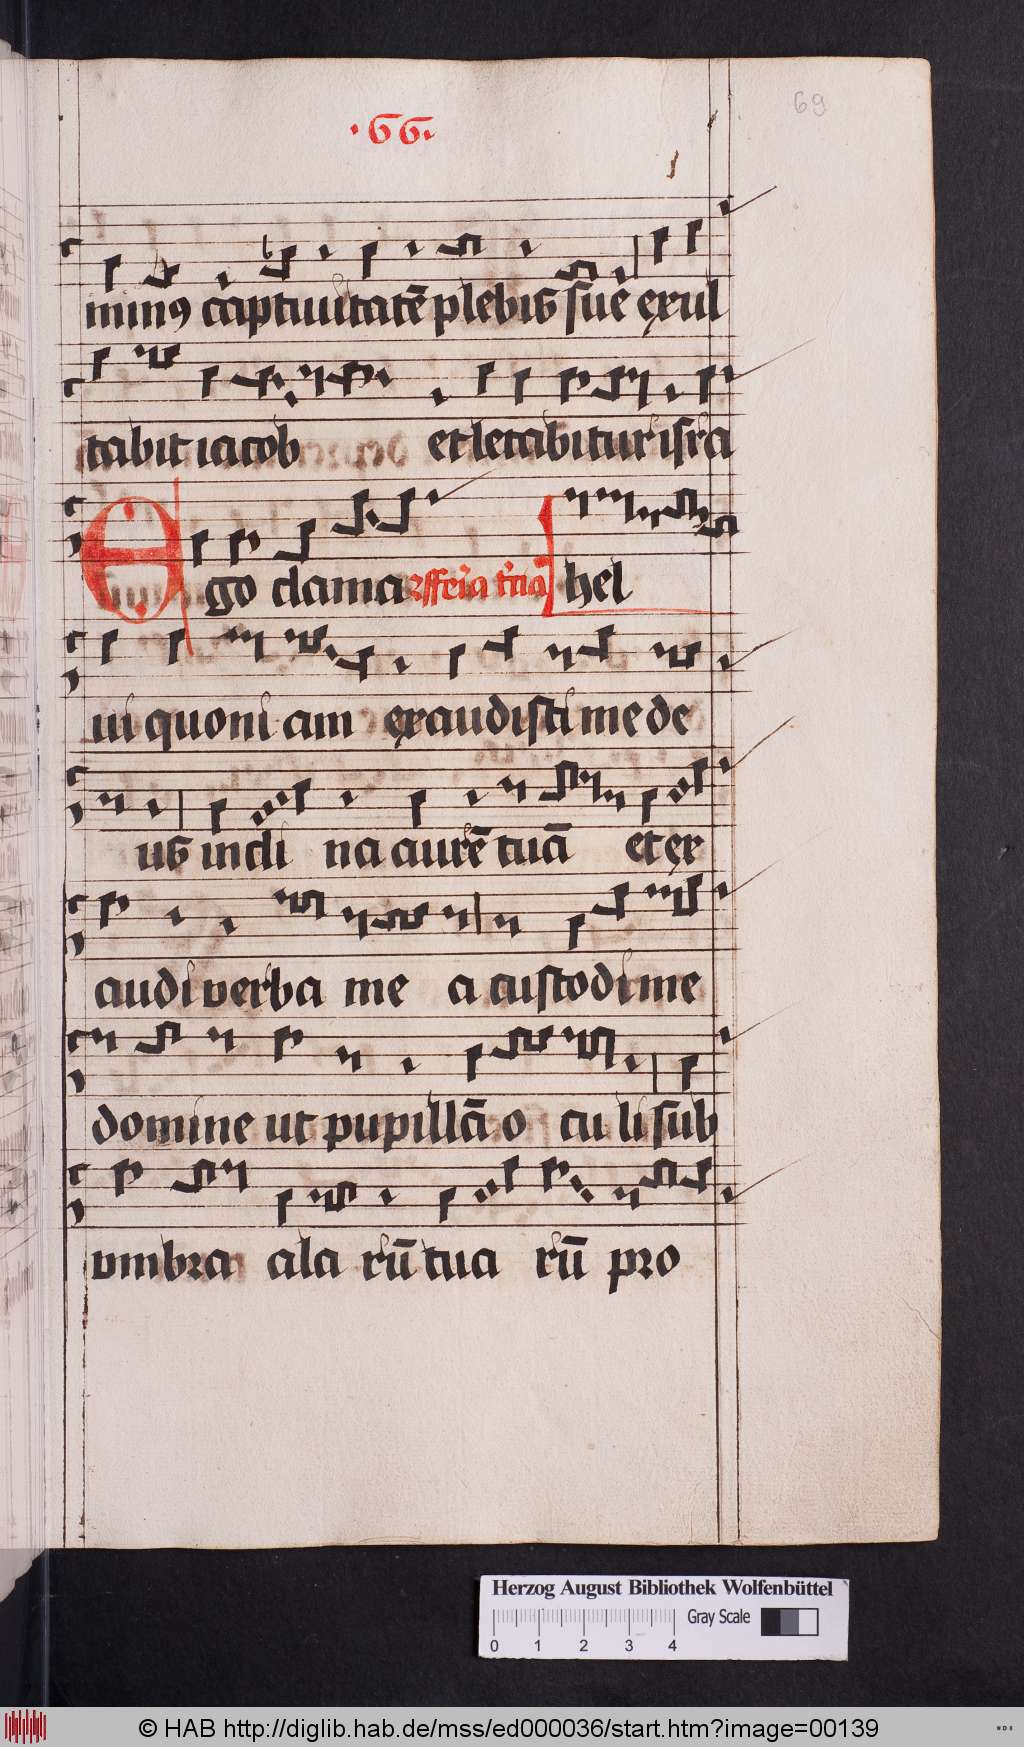 69
·66·
minꝯ captiuitatē plebis sue exul
tabit iacob et letabitur isra
Ego clama ff feria tcia hel
ui quoni am exaudisti me de
us incli na aurē tuā et ex
audi verba me a custodi me
domine ut pupillā o cu li sub
vmbra ala rū tua rū pro
Herzog August Bibliothek Wolfenbüttel
Gray Scale
0 1 2 3 4
© HAB http://diglib.hab.de/mss/ed000036/start.htm?image=00139